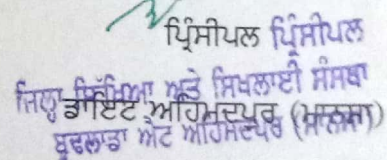 ਪ੍ਰਿੰਸੀਪਲ ਪ੍ਰਿੰਸੀਪਲ
ਜਿਲ੍ਹਾ ਸਿੱਖਿਆ ਅਤੇ ਸਿਖਲਾਈ ਸੰਸਥਾ
ਡਾਇਟ ਅਹਿਮਦਪੁਰ (ਮਾਨਸਾ)
ਬੁਢਲਾਡਾ ਐਟ ਅਹਿਮਦਪੁਰ (ਮਾਨਸਾ)